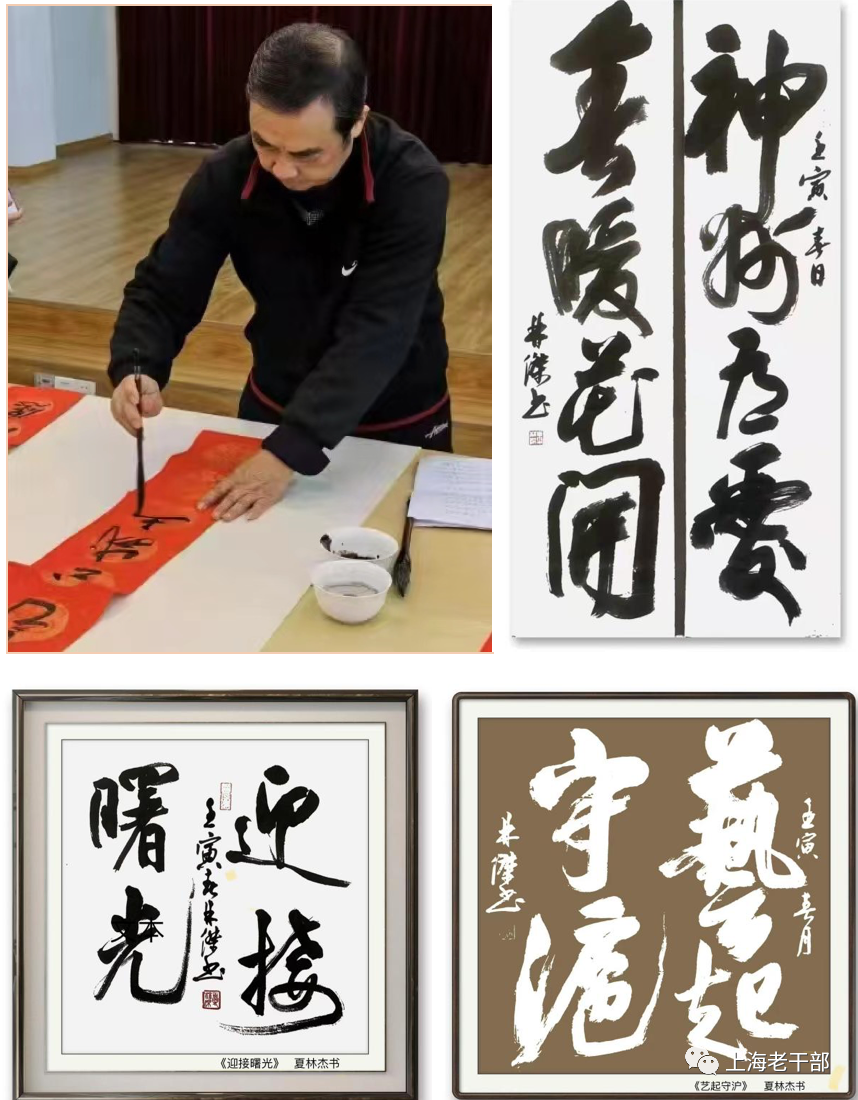 神州有愛
壬寅春日
春暖花開
林傑书
迎接
壬寅春林傑书
曙光
《迎接曙光》 夏林杰书
壬寅 春月
藝起
守滬
林傑书
上海老干部
《艺起守沪》 夏林杰书